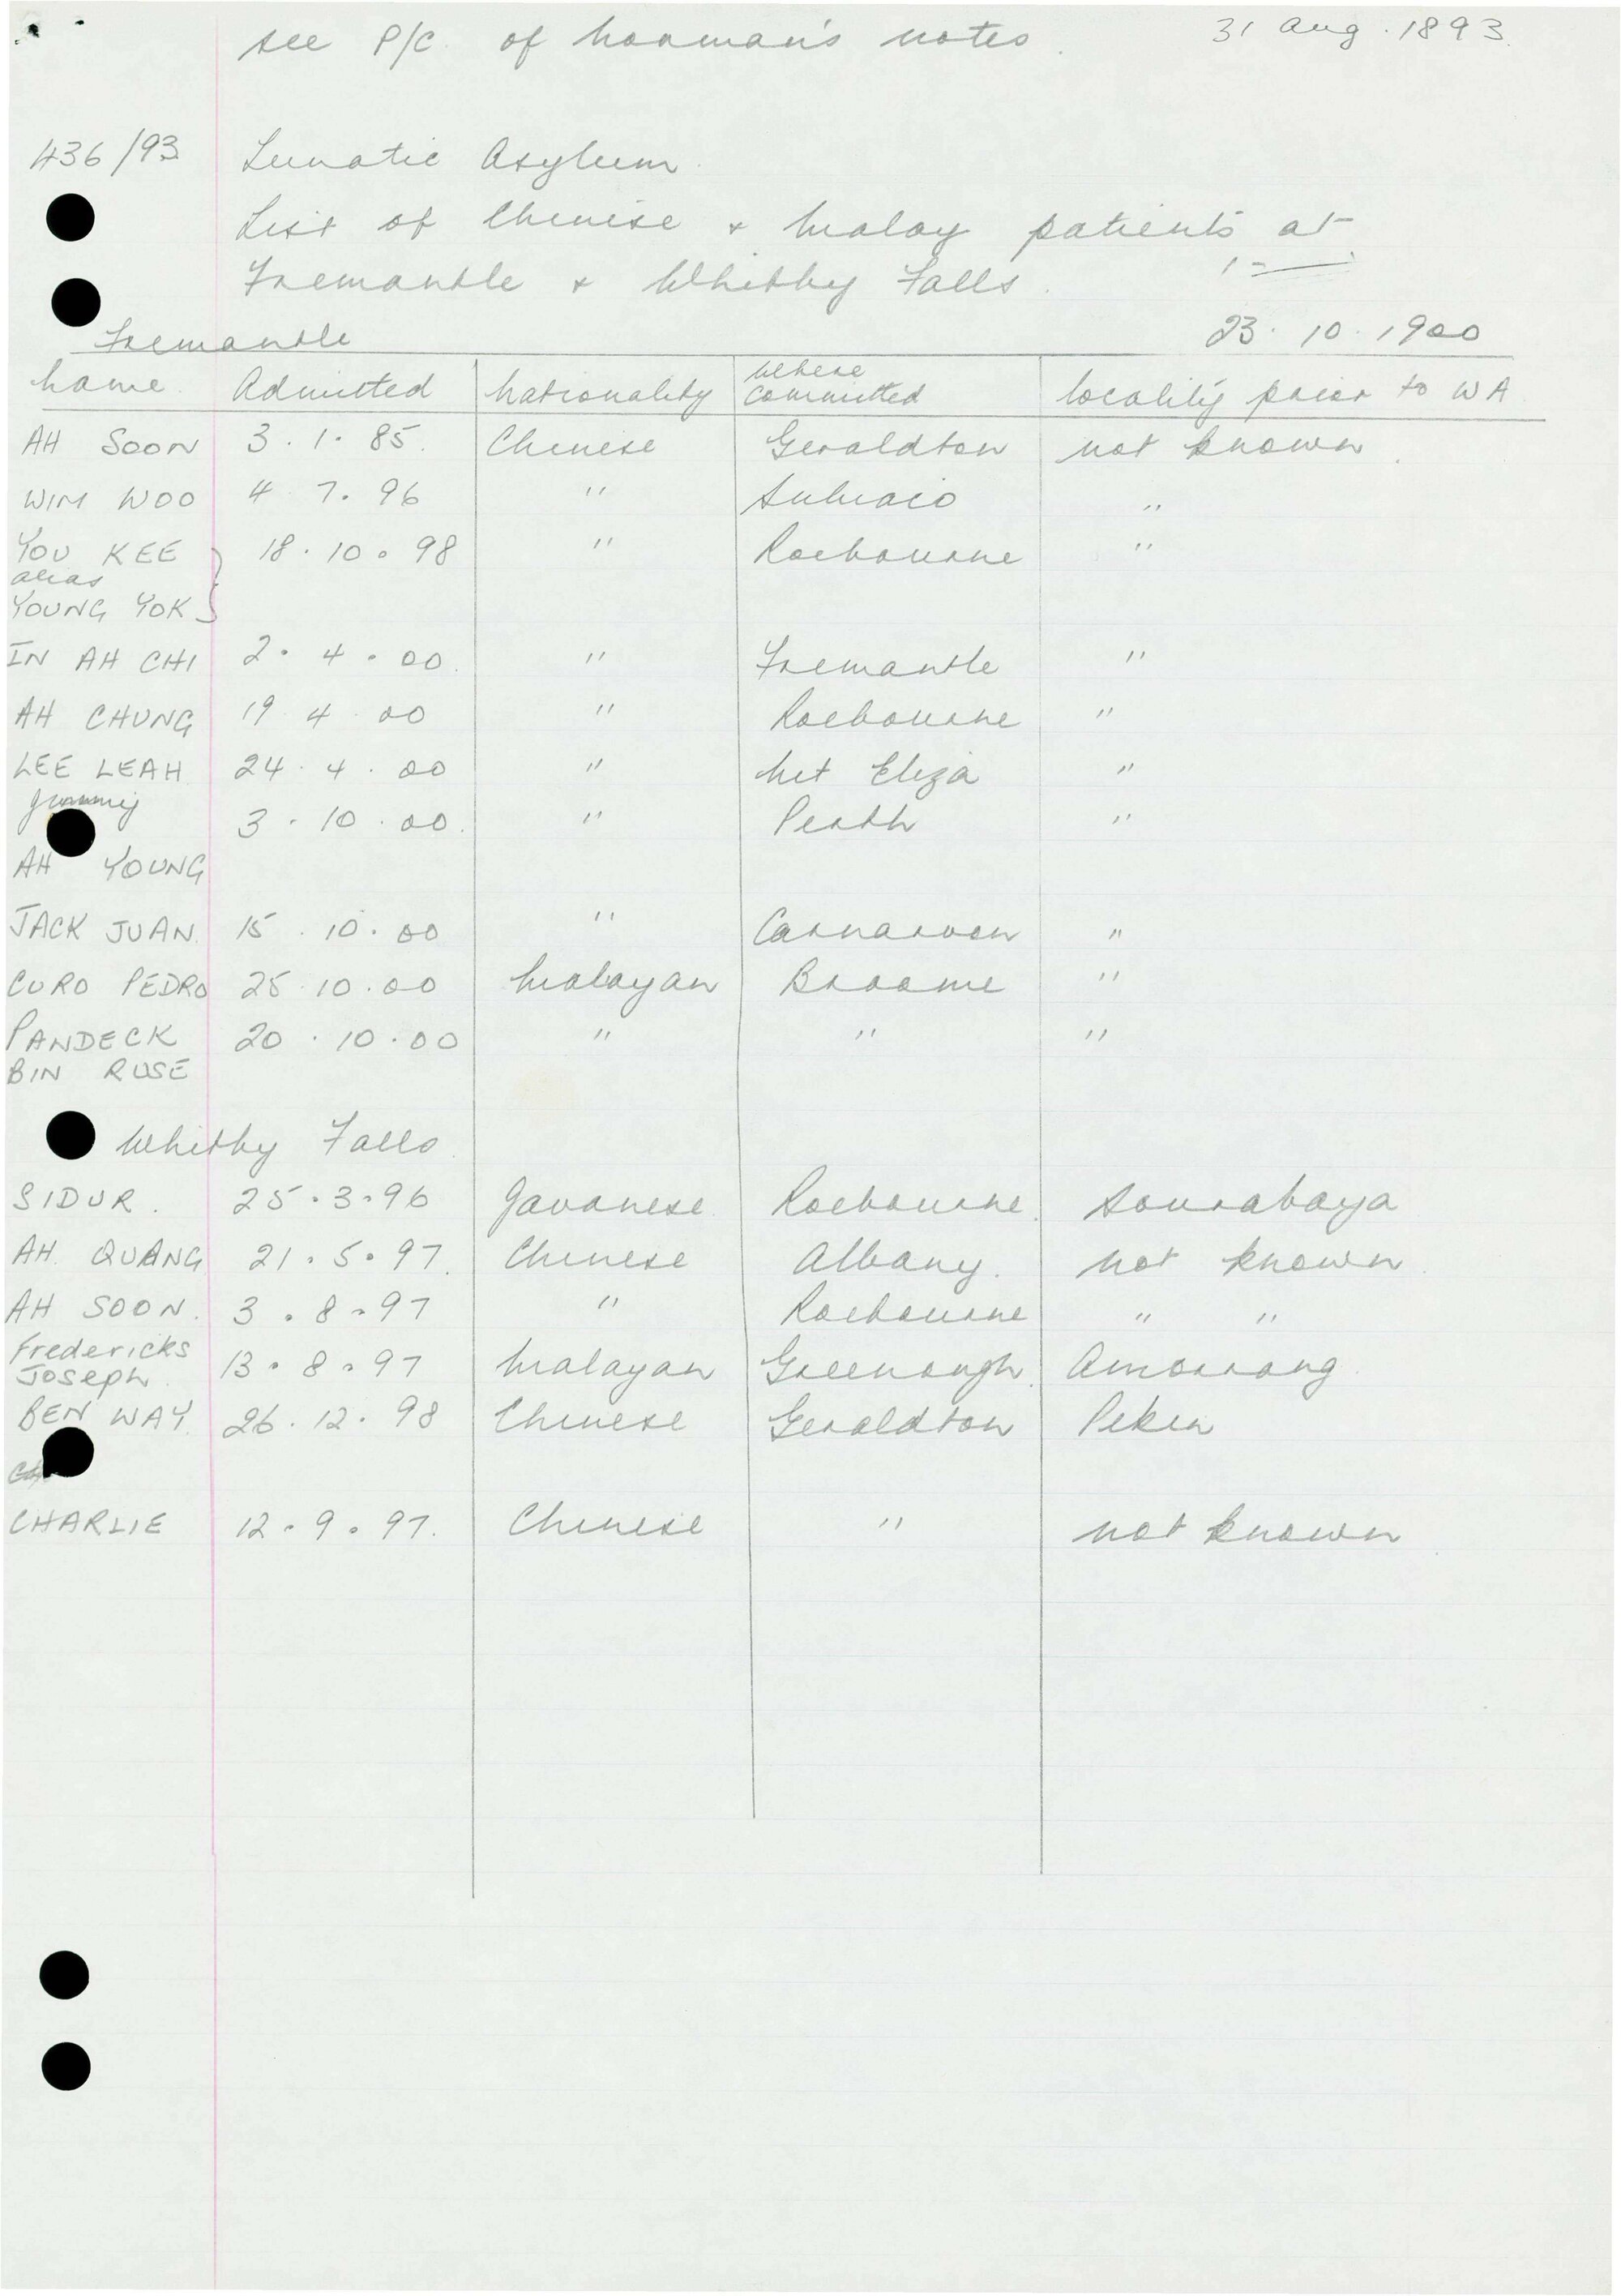 see P/C of Norman's notes. 31 Aug. 1893.
436/93 Lunatic Asylum.
List of Chinese + Malay patients at
Fremantle + Whitby Falls.
23. 10. 1900
Fremantle
Name Admitted Nationality Where Committed locality prior to WA
AH SOON 3. 1. 85. Chinese Geraldton not known.
WIM WOO 4 7. 96 " Subiaco "
YOU KEE } 18. 10. 98 " Roebourne "
alias
YOUNG YOK
IN AH CHI 2. 4. 00. " Fremantle "
AH CHUNG 19 4 00 " Roebourne "
LEE LEAH 24. 4. 00 " Mt Eliza "
Jimmy 3. 10. 00. " Perth "
AH YOUNG
JACK JUAN. 15. 10. 00 " Carnarvon "
CURO PEDRO 25. 10. 00 Malayan Broome "
PANDECK 20. 10. 00 " " "
BIN RUSE
Whitby Falls.
SIDUR. 25. 3. 96 Javanese Roebourne. Sourabaya
AH. QUANG 21. 5. 97. Chinese Albany. not known.
AH SOON. 3. 8. 97 " Roebourne " "
Fredericks
Joseph. 13. 8. 97 Malayan Greenough. Amoorang
BEN WAY. 26. 12. 98 Chinese Geraldton Pekin
CHARLIE 12. 9. 97. Chinese " not known.